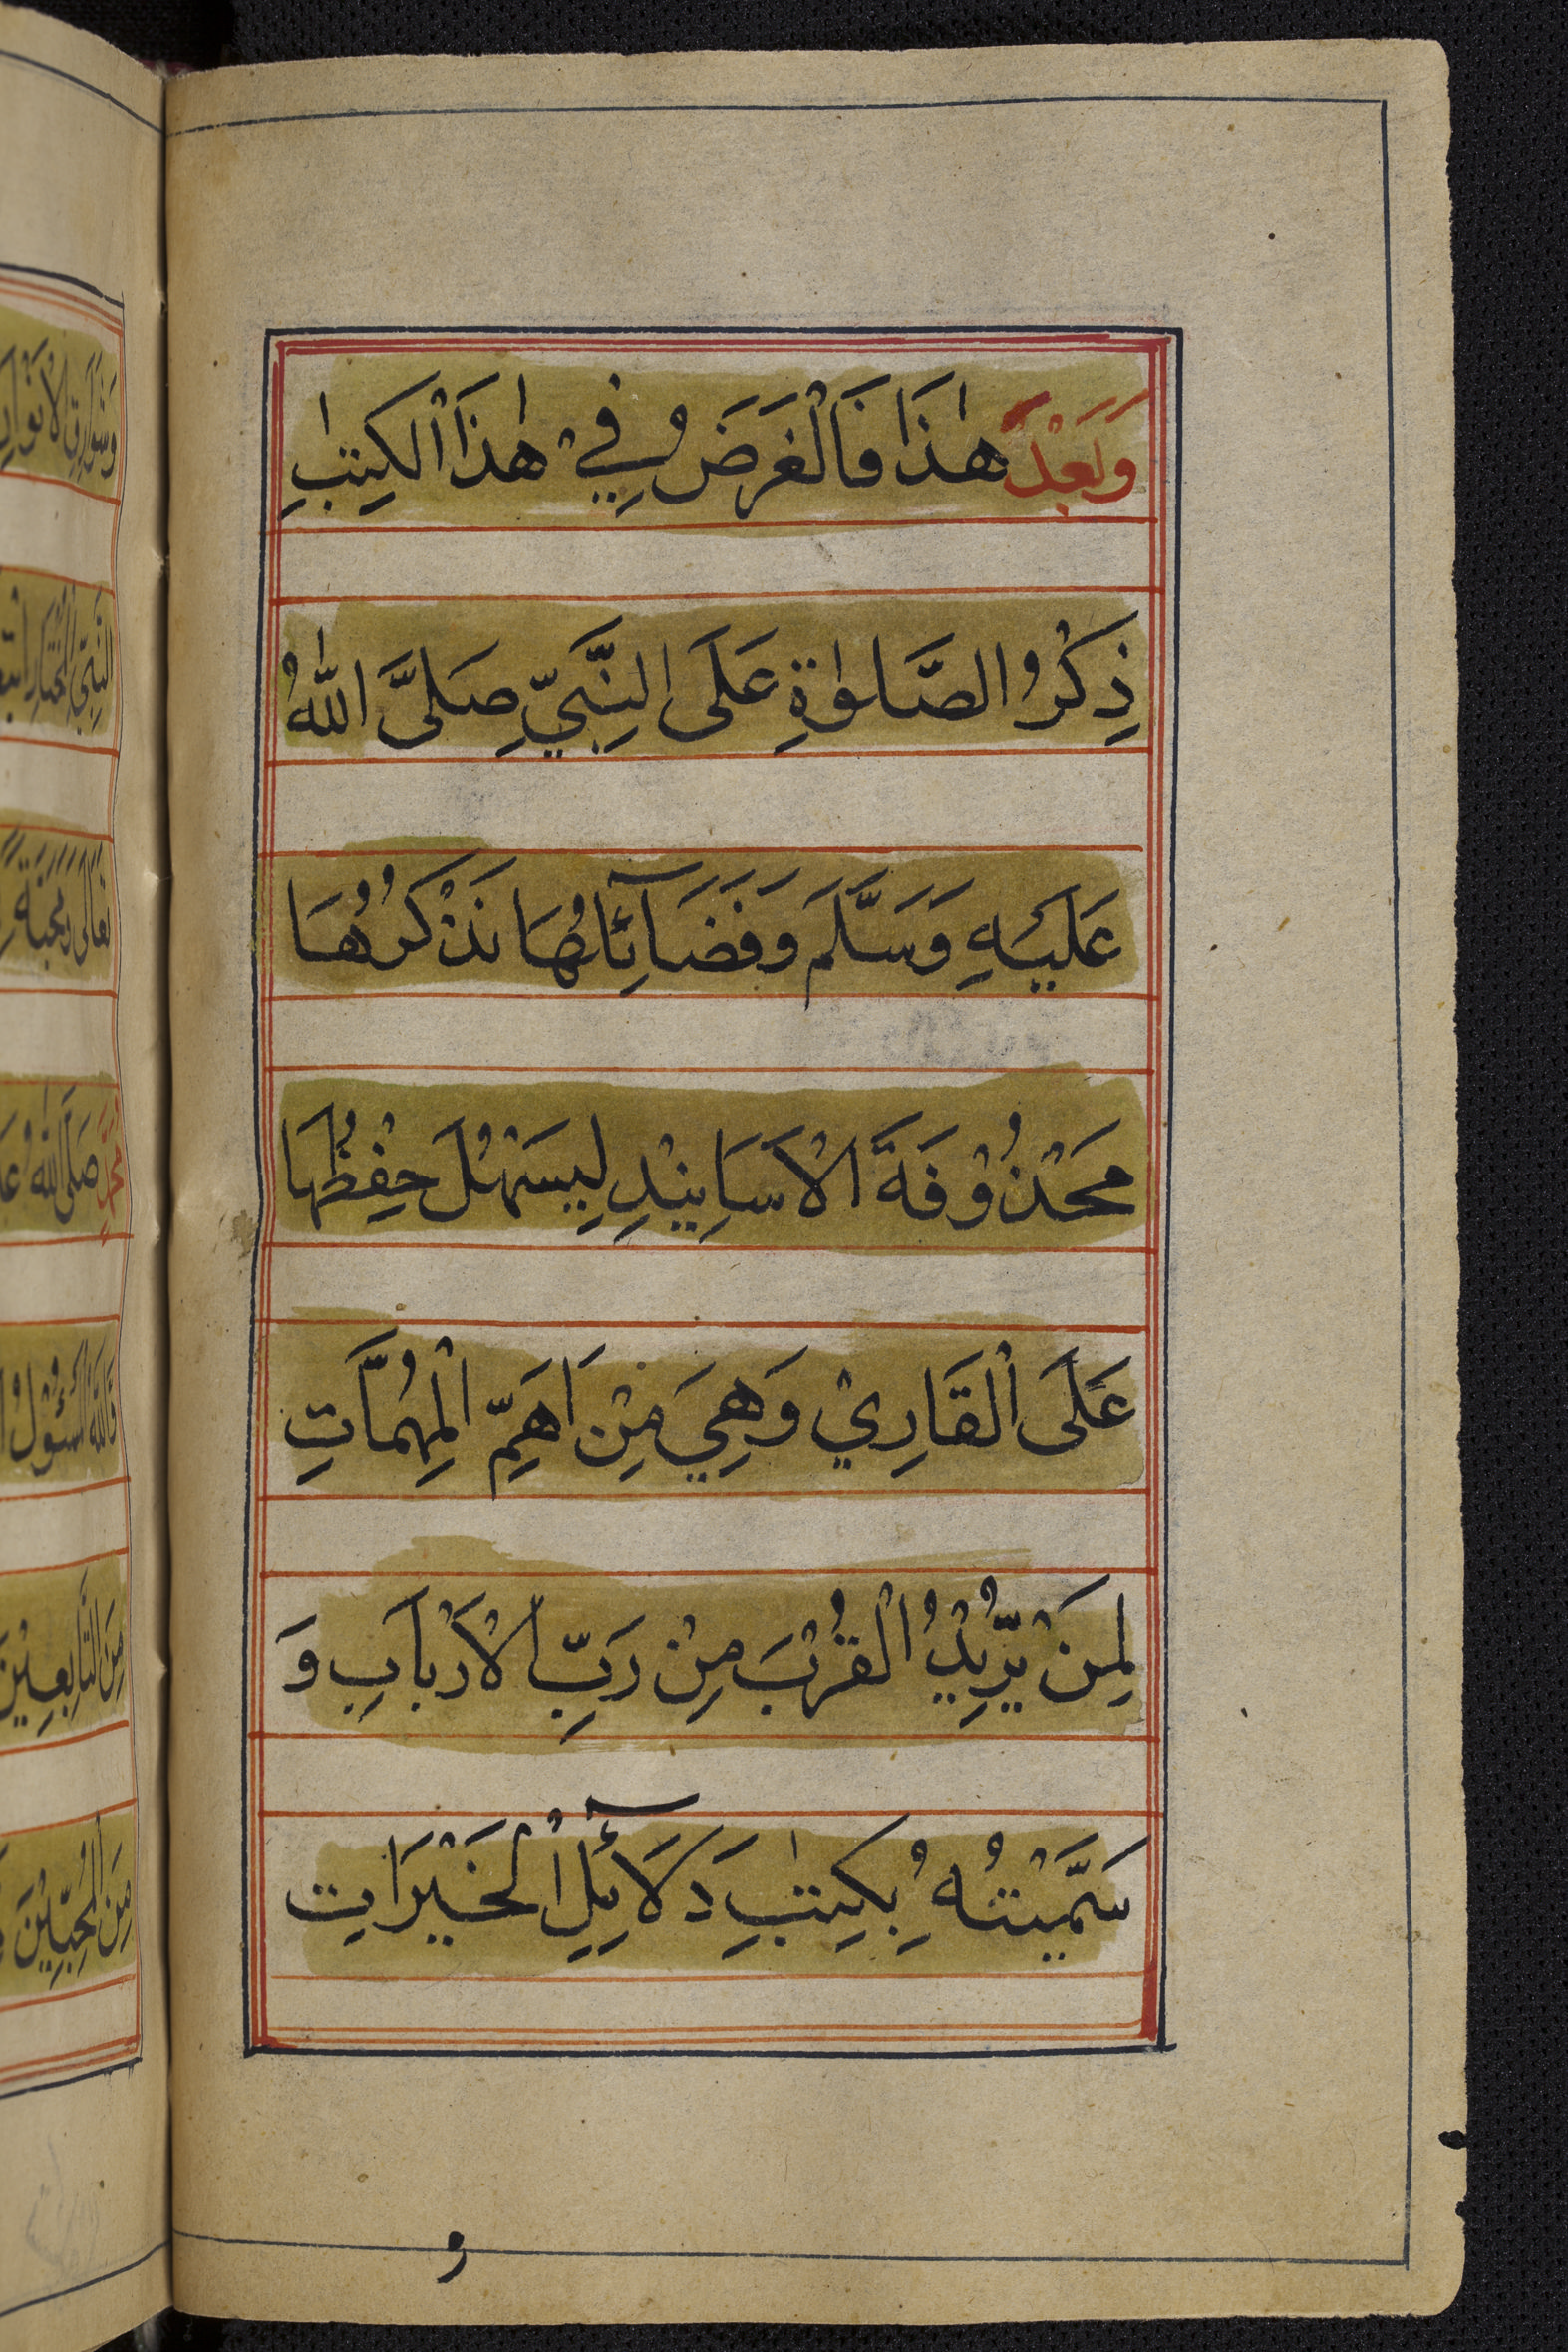 وَبَعْدَ هٰذَا فَالْغَرَضُ فِيْ هٰذَا الْكِتٰبِ
ذِكْرُ الصَّلٰوةِ عَلَى النَّبِيِّ صَلَّى اللّٰهُ
عَلَيْهِ وَسَلَّمَ وَفَضَآئِلُهَا نَذْكُرُهَا
مَحْذُوْفَةَ الْاَسَانِيْدِ لِيَسْهُلَ حِفْظُهَا
عَلَى الْقَارِيْ وَهِيَ مِنْ اَهَمِّ الْمُهِمَّاتِ
لِمَنْ يُّرِيْدُ الْقُرْبَ مِنْ رَبِّ الْاَرْبَابِ وَ
سَمَّيْتُهُ بِكِتٰبِ دَلَآئِلِ الْخَيْرَاتِ
و